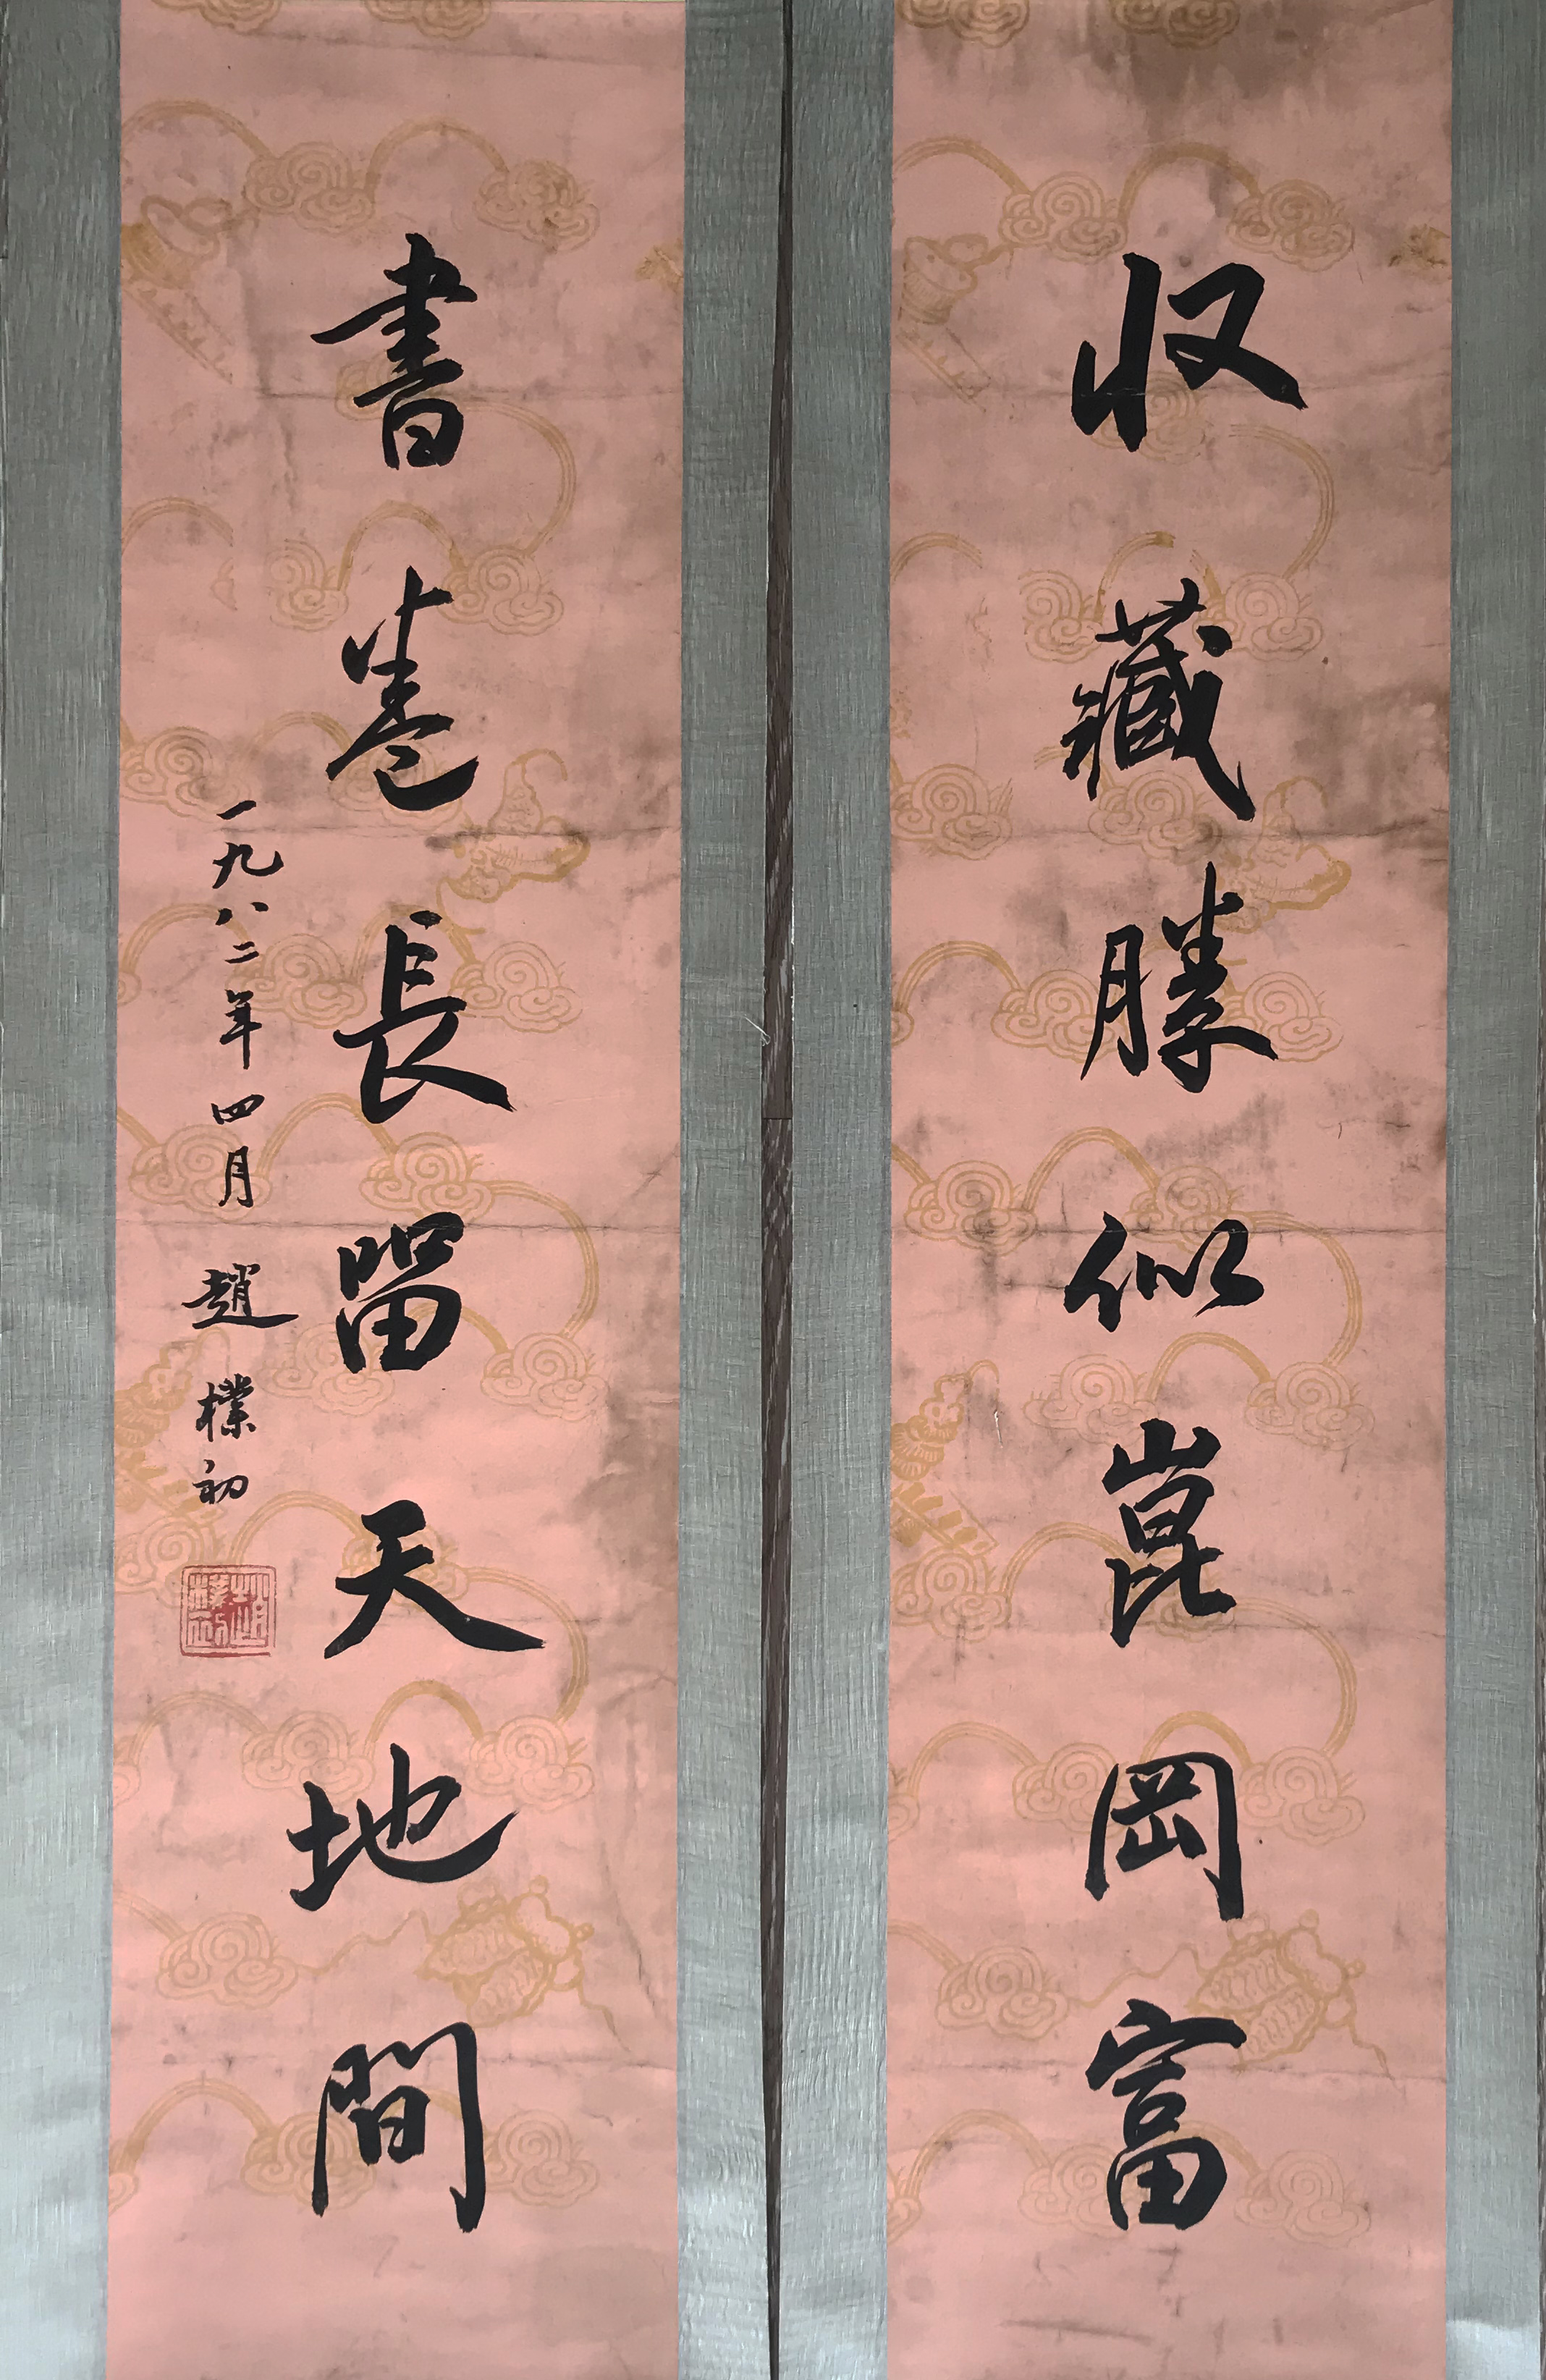 收藏勝似崑岡富
書卷長留天地間
一九八二年四月 趙樸初